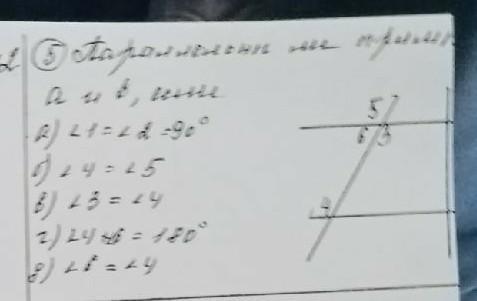 ⑤ Параллельны ли прямы
а и b, если
а) ∠1=∠2=90°
б) ∠4=∠5
в) ∠3=∠4
г) ∠4+6=180°
д) ∠6=∠4
5
6 3
4